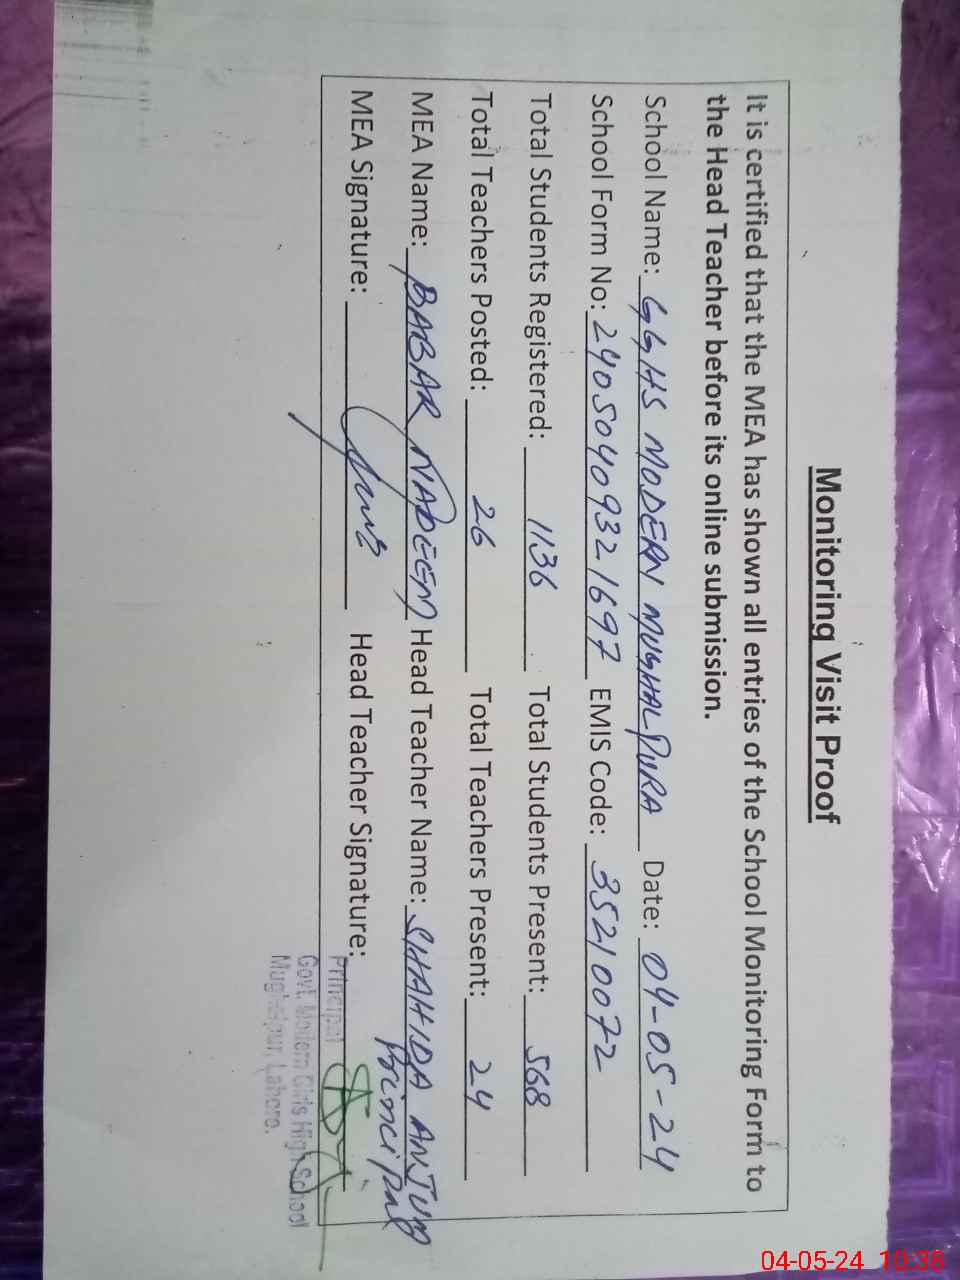 Monitoring Visit Proof
It is certified that the MEA has shown all entries of the School Monitoring Form to
the Head Teacher before its online submission.
School Name: GGHS MODERN MUGHALPURA Date: 04-05-24
School Form No: 24050409321697 EMIS Code: 35210072
Total Students Registered: 1136 Total Students Present: 568
Total Teachers Posted: 26 Total Teachers Present: 24
MEA Name: BABAR NADEEM Head Teacher Name: SHAHIDA ANJUM
Principal
MEA Signature: Head Teacher Signature:
Principal
Govt. Modern Girls High School
Mughalpur, Lahore.
04-05-24 10:38